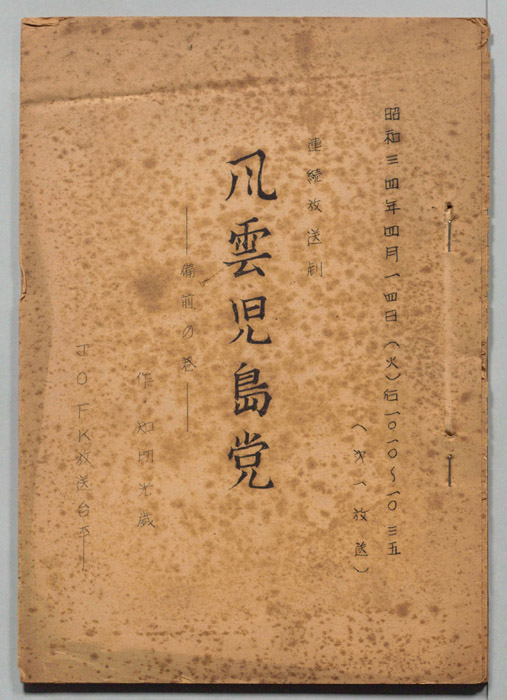 昭和三四年四月一四日（火）后一〇.一〇～一〇.三五
（オ一放送）
連続放送劇
風雲児島党
――備前の巻――
作
JOFK放送台本